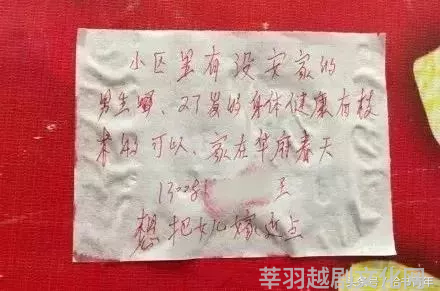 小区里有没安家的
男生嘛、27岁的身体健康有技
术的可以、家在华府春天
想把女儿嫁近点
莘羽越剧